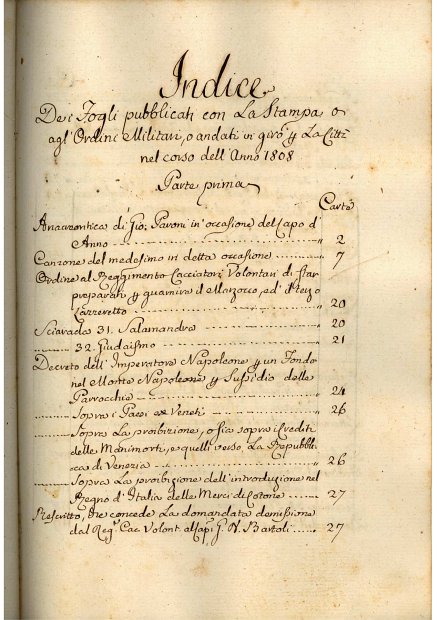 Indice
Dei Fogli pubblicati con La Stampa o
agl'Ordini Militari, o andati in giro p La Città
nel corso dell'Anno 1808
Parte prima
Carte
Anacreontica di Gio: Pavoni in occasione del Capo d'
Anno 2
Canzone del medesimo in detta occasione 7
Ordine al Reggimento Cacciatori Volontari di star
preparati p guarnire il Marzocco, ed il terzo
Lazzeretto 20
Sciarada 31. Salamandra 20
32. Giudaismo 21
Decreto dell'Imperatore Napoleone p un Fondo
nel Monte Napoleone p Sussidio delle
Parrocchie 24
Sopra i Paesi ex Veneti 26
Sopra La proibizione, o sia sopra i Crediti
delle Manimorti, e quelli verso La Repubbli
ca di Venezia 26
Sopra La proibizione dell'introduzione nel
Regno d'Italia delle Merci di Cotone 27
Rescritto, che concede La domandata demissione
dal Reg. Cac. Volont. al Capi G. Bartoli 27